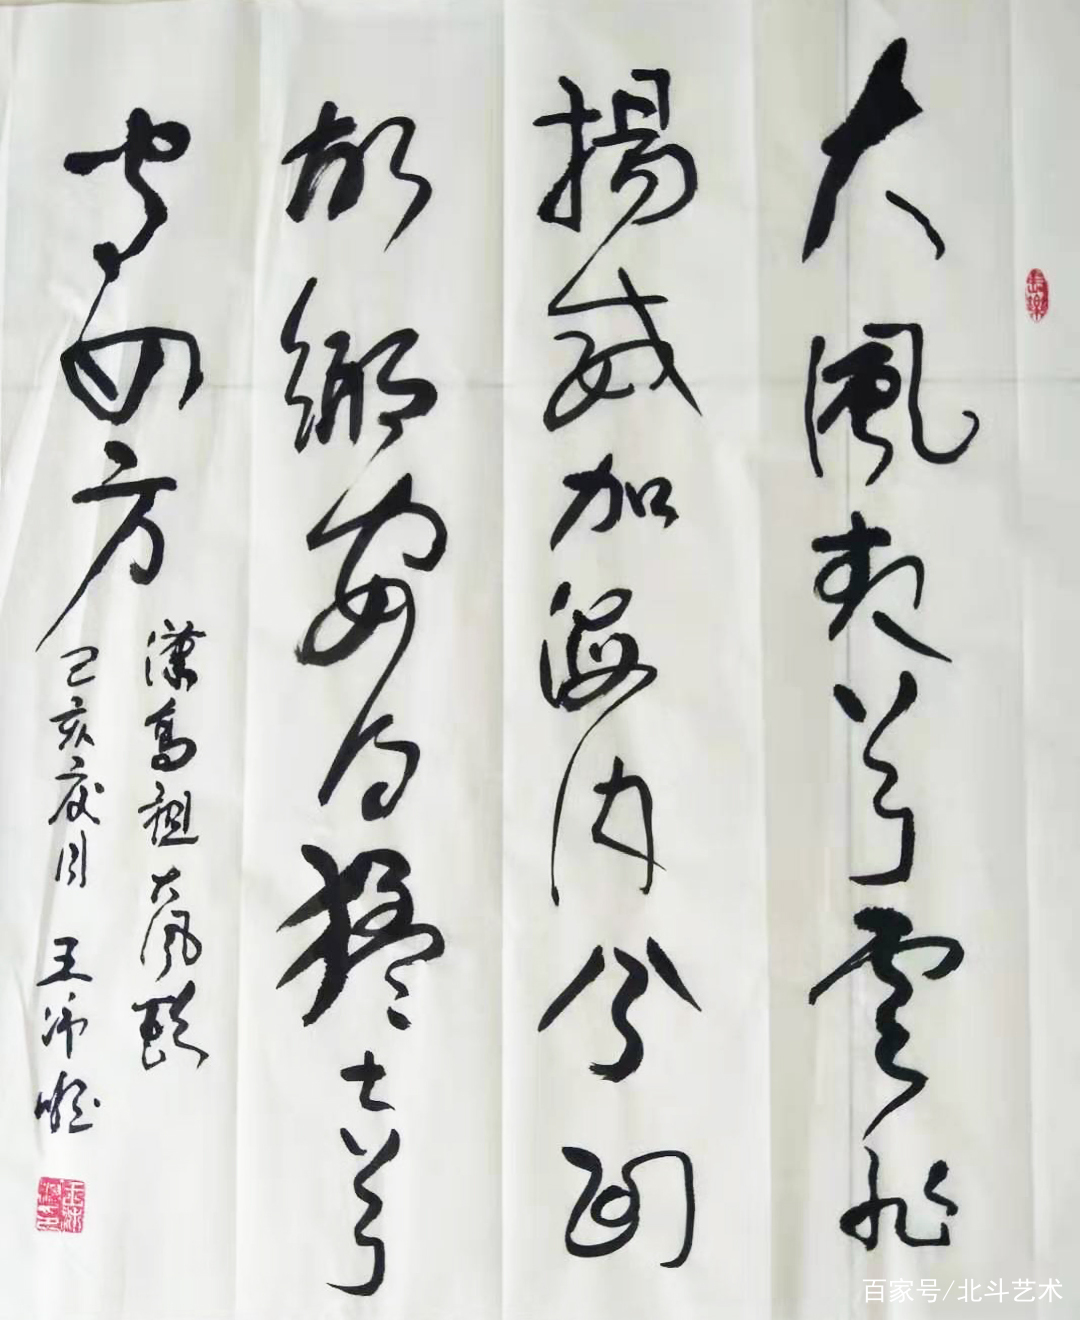 大風起兮雲飛
揚威加海内兮歸
故鄉安得猛士兮
守四方
漢高祖大風歌
己亥月 王沛
百家号/北斗艺术